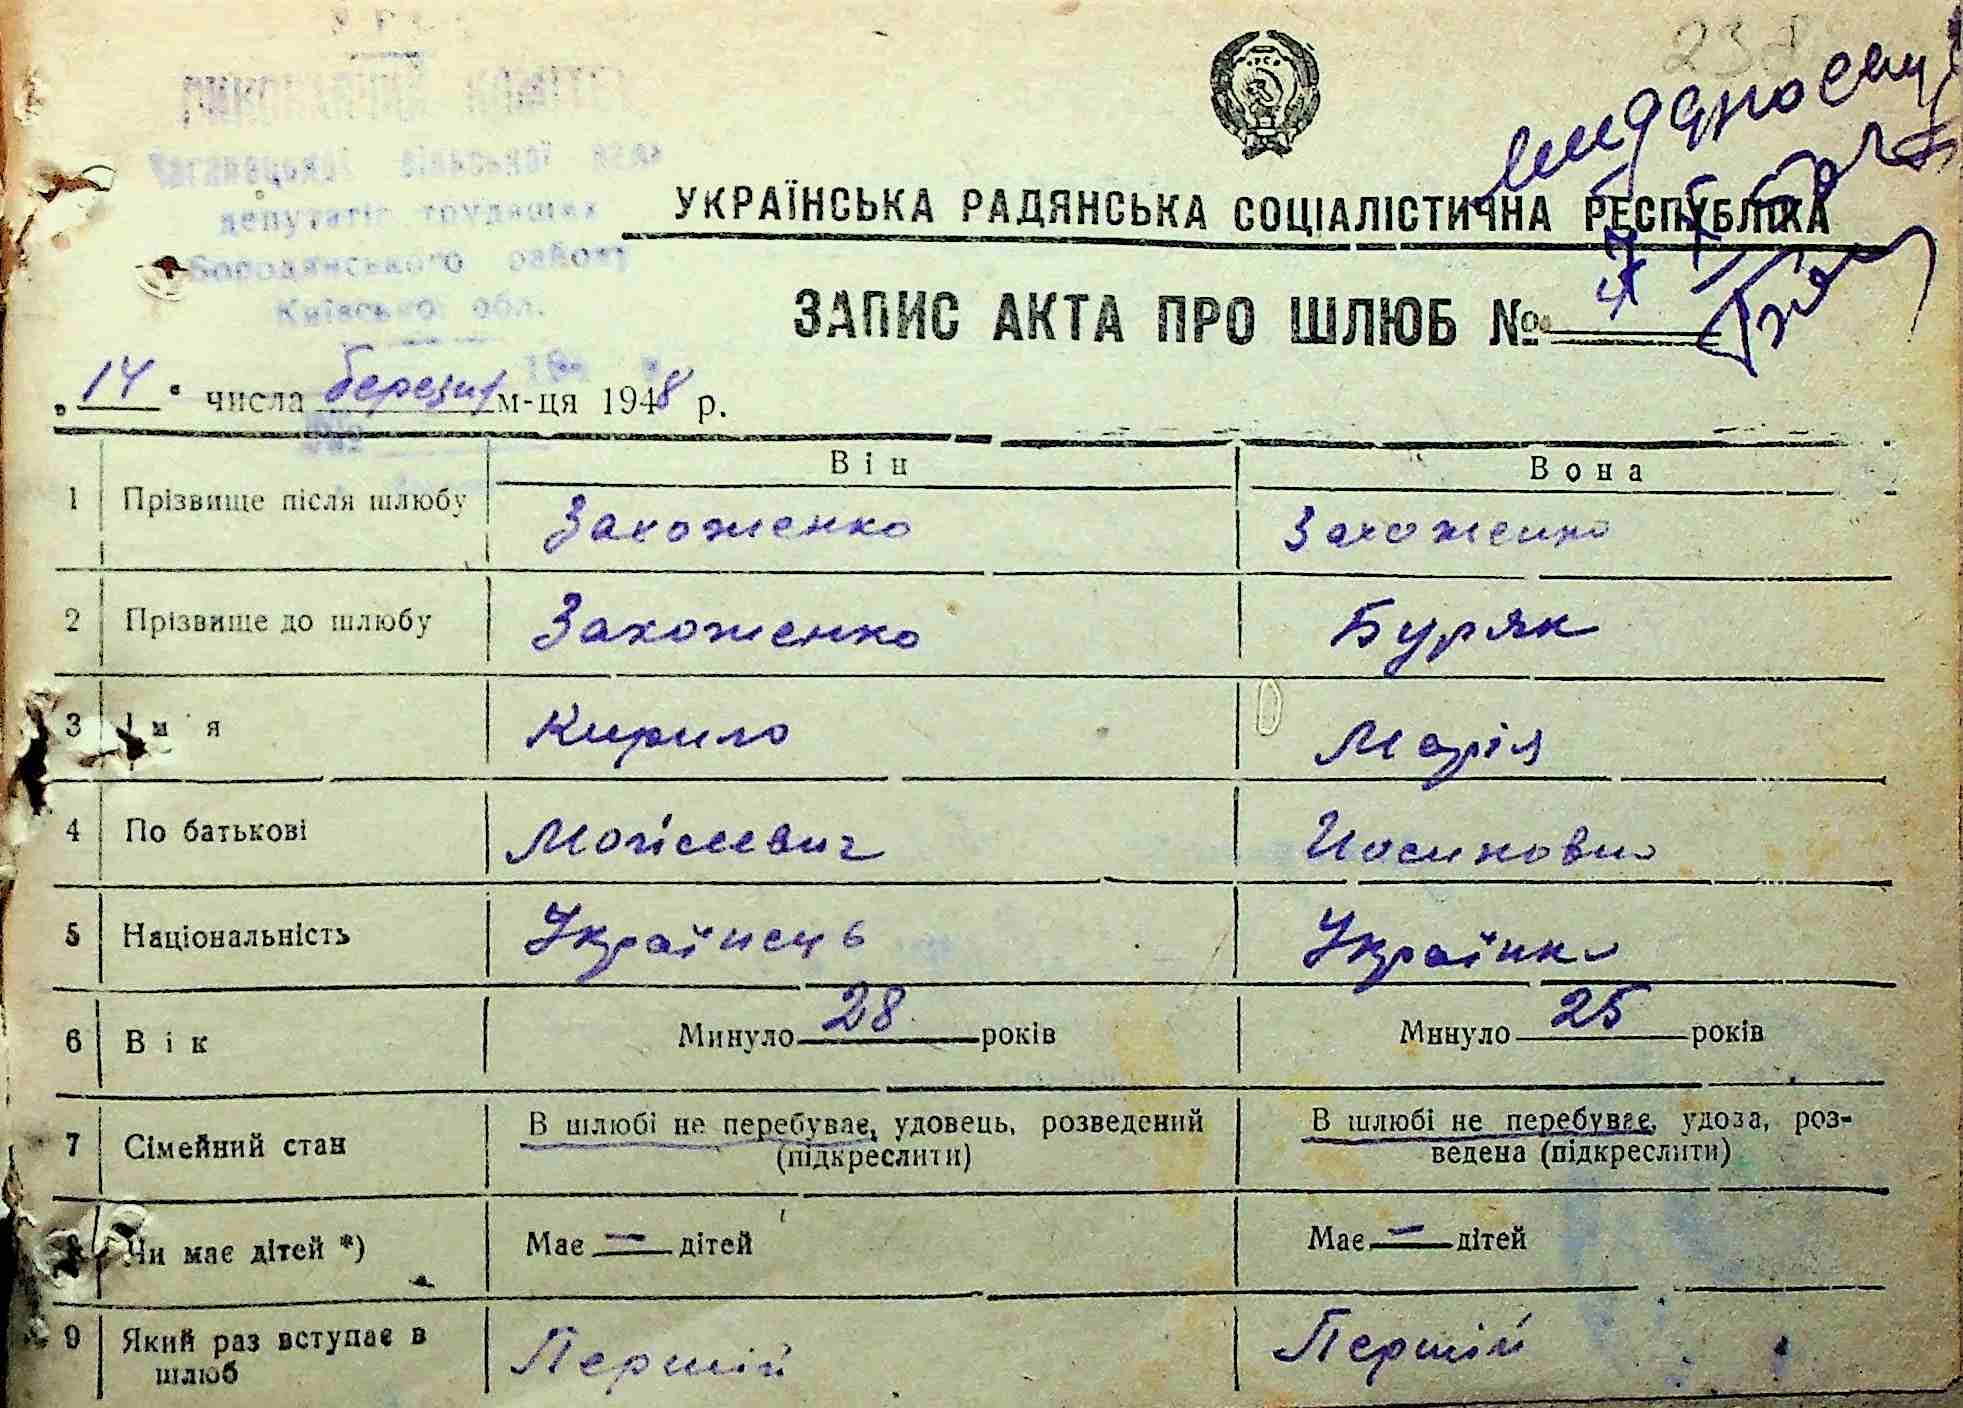 238
сільської
депутатів трудящих
Бородянського району
Київської обл.
УКРАЇНСЬКА РАДЯНСЬКА СОЦІАЛІСТИЧНА РЕСПУБЛІКА
ЗАПИС АКТА ПРО ШЛЮБ №
„14“ числа березня м-ця 1948 р.
Він Вона
1 Прізвище після шлюбу Захоженко Захоженко
2 Прізвище до шлюбу Захоженко Буряк
3 Ім'я Кирило Марія
4 По батькові Мойсеевич Иосиповна
5 Національність Українець Українка
6 Вік Минуло 28 років Минуло 25 років
7 Сімейний стан В шлюбі не перебуває, удовець, розведений В шлюбі не перебуває, удова, роз-
(підкреслити) ведена (підкреслити)
8 Чи має дітей *) Має — дітей Має — дітей
9 Який раз вступає в Перший Перший
шлюб